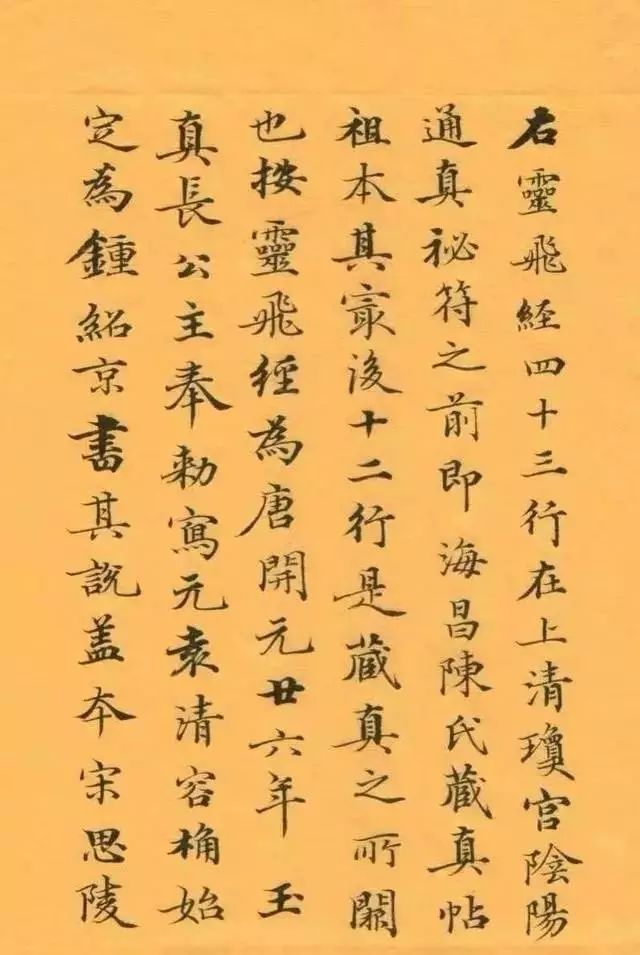 右靈飛經四十三行在上清瓊宫陰陽
通真祕符之前即海昌陳氏藏真帖
祖本其㝡後十二行是藏真之所闕
也按靈飛經為唐開元廿六年玉
真長公主奉勅寫元袁清容桷始
定為鍾紹京書其說盖本宋思陵